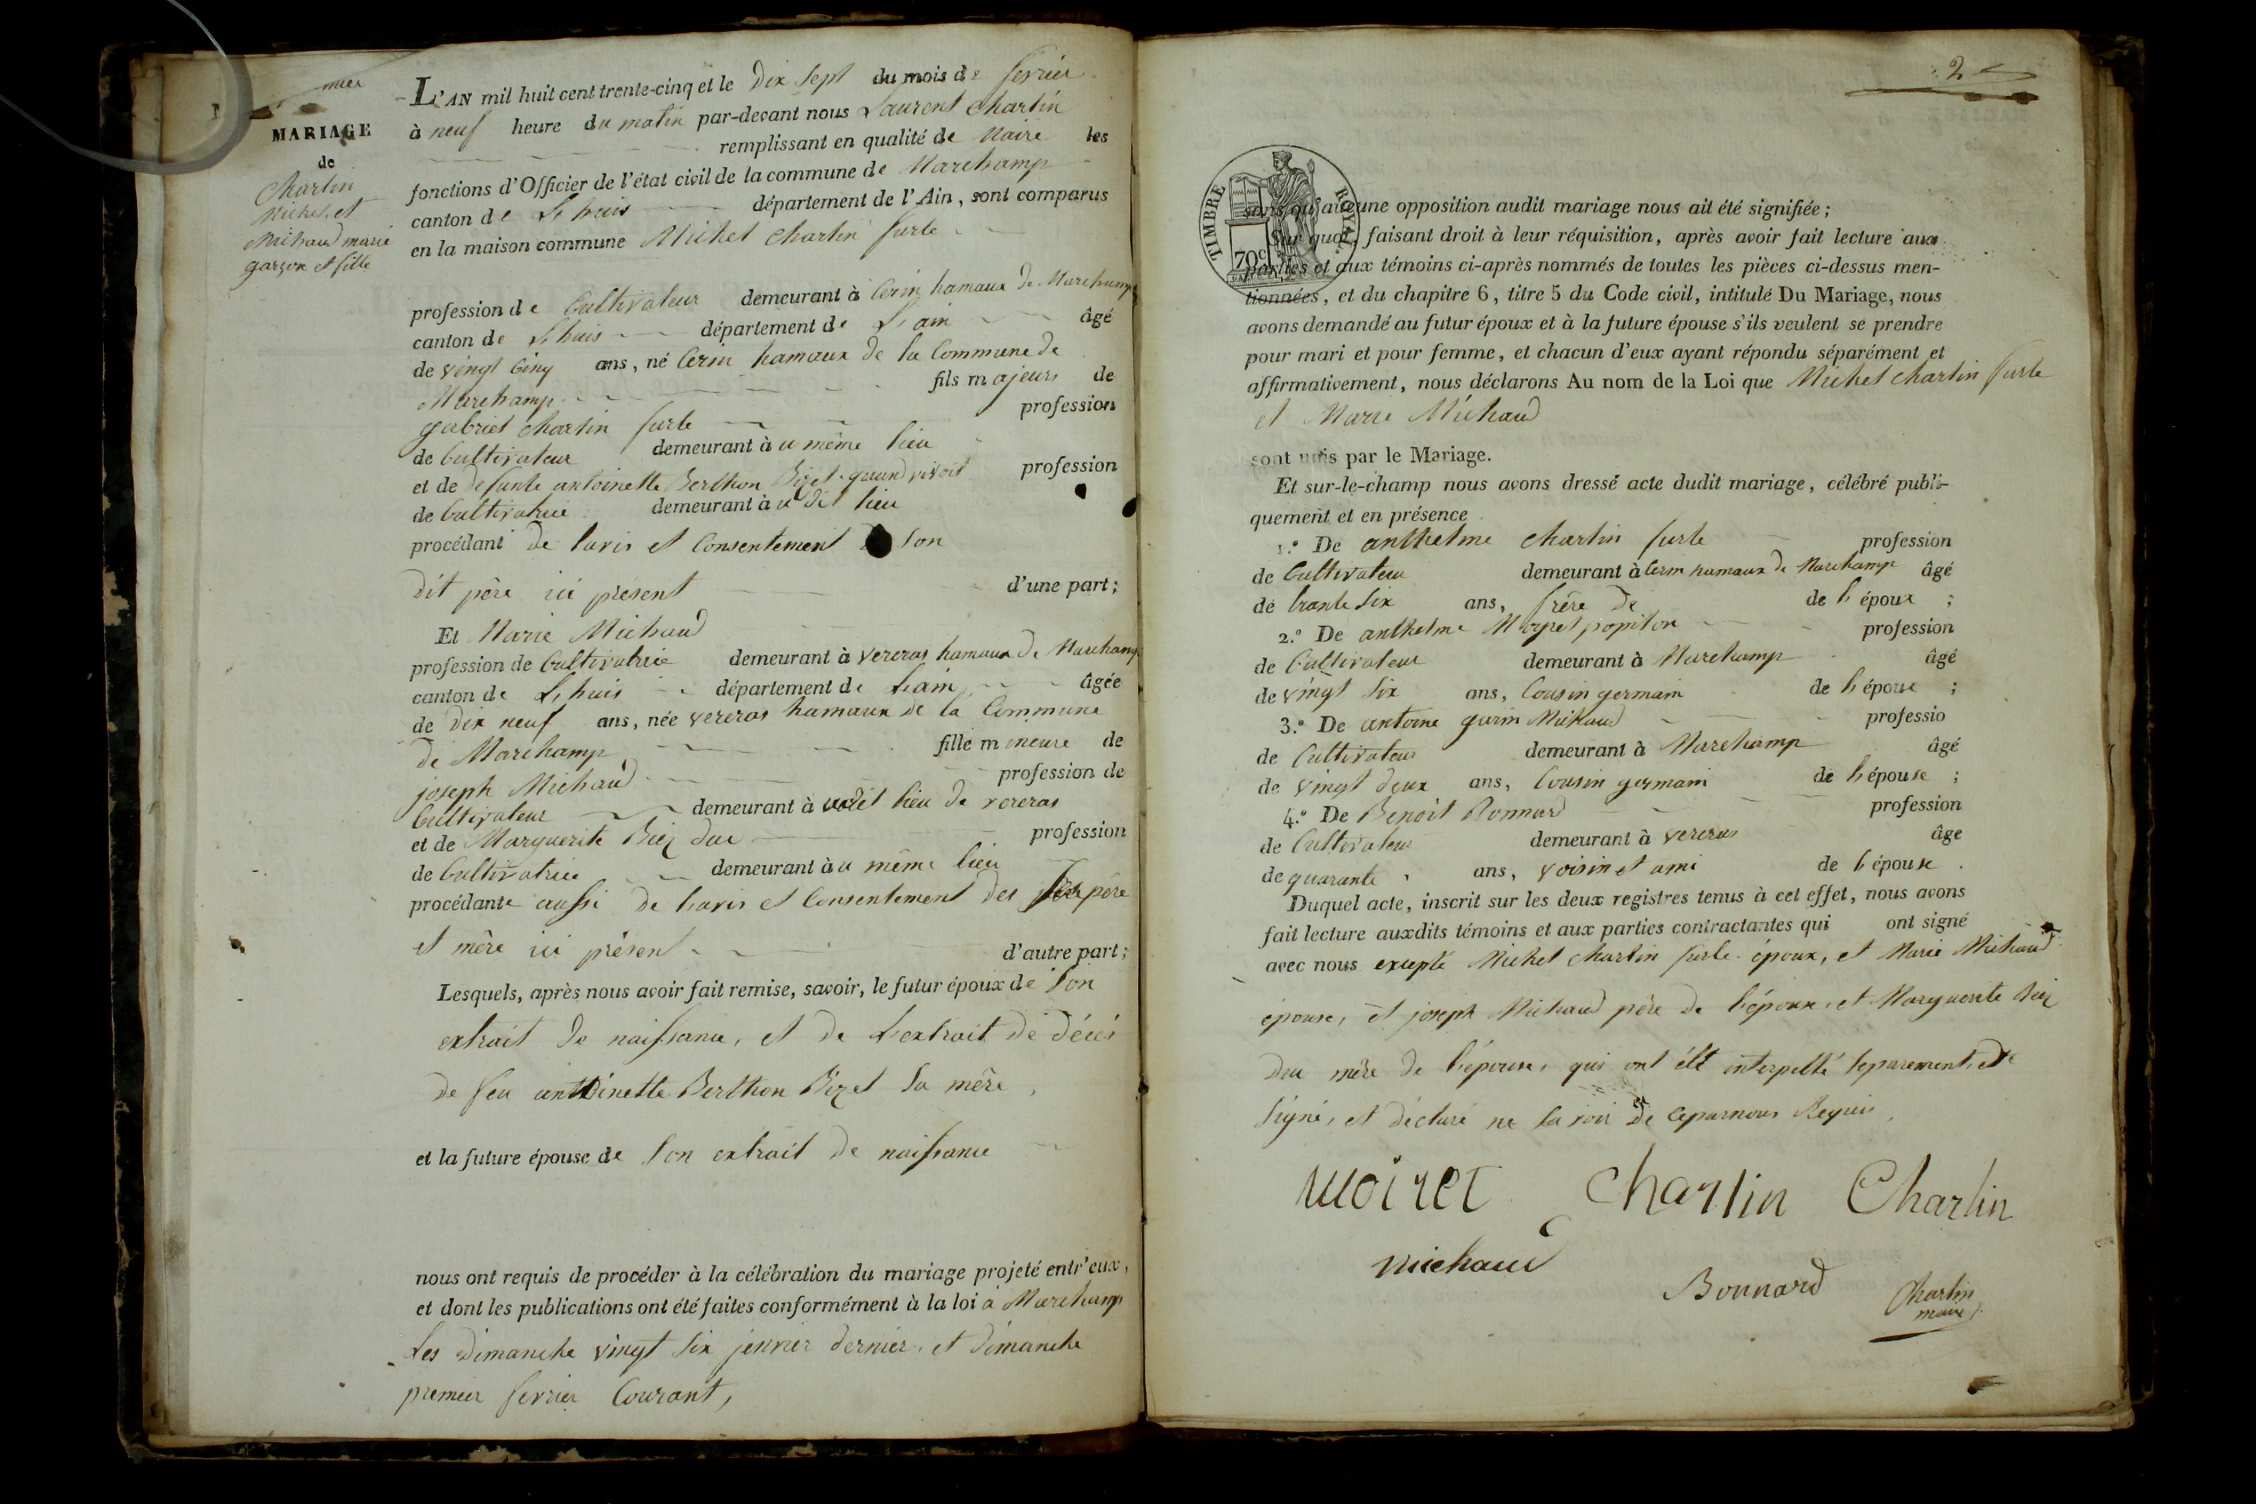 mier
MARIAGE
de
Charlin
Michel et
Michaud marie
garçon et fille
L'AN mil huit cent trente-cinq et le Dix sept du mois de fevrier
à neuf heure du matin par-devant nous Laurent Charlin
remplissant en qualité de Maire les
fonctions d'Officier de l'état civil de la commune de Marchamp
canton de Lhuis département de l'Ain, sont comparus
en la maison commune Michel Charlin furle
profession de Cultivateur demeurant à Cerin hamaux de Marchamp
canton de Lhuis département de L'ain âgé
de vingt Cinq ans, né Cerin hamaux de la Commune de
Marchamp fils majeurs de
gabriel Charlin furle profession
de Cultivateur demeurant à u même lieu
et de defunte antoinette Berthon Bizet quand vivoit profession
de Cultivatrice demeurant à u dit lieu
procédant De lavis et Consentement De Son
dit père ici présent d'une part;
Et Marie Michaud
profession de Cultivatrice demeurant à vereras hamaux de Marchamp
canton de Lhuis département de Lain âgée
de Dix neuf ans, née vereras hamaux de la Commune
de Marchamp fille mineure de
joseph Michaud profession de
Cultivateur demeurant à udit lieu de vereras
et de Marguerite Biez duc profession
de Cultivatrice demeurant à u même lieu
procédante aussi de lavis et Consentement des père
et mère ici présent d'autre part;
Lesquels, après nous avoir fait remise, savoir, le futur époux de Son
extrait de naissance, et de Lextrait de décès
de feu antoinette Berthon Bizet Sa mère,
et la future épouse de Son extrait de naissance
nous ont requis de procéder à la célébration du mariage projeté entr'eux,
et dont les publications ont été faites conformément à la loi à Marchamp
Les dimanche vingt six jenvier dernier, et dimanche
premier fevrier Courant,
2
TIMBRE ROYAL
70c
sans qu'aucune opposition audit mariage nous ait été signifiée;
Sur quoi, faisant droit à leur réquisition, après avoir fait lecture aux
parties et aux témoins ci-après nommés de toutes les pièces ci-dessus men-
tionnées, et du chapitre 6, titre 5 du Code civil, intitulé Du Mariage, nous
avons demandé au futur époux et à la future épouse s'ils veulent se prendre
pour mari et pour femme, et chacun d'eux ayant répondu séparément et
affirmativement, nous déclarons Au nom de la Loi que Michel Charlin furle
et Marie Michaud
sont unis par le Mariage.
Et sur-le-champ nous avons dressé acte dudit mariage, célébré publi-
quement et en présence
1.º De anthelme Charlin furle profession
de Cultivateur demeurant à Cerin hamaux de Marchamp âgé
de trante six ans, frère de de l'époux;
2.º De anthelme popilon profession
de Cultivateur demeurant à Marchamp âgé
de vingt six ans, Cousin germain de l'épouse;
3.º De antoine gurin Michaud professio
de Cultivateur demeurant à Marchamp âgé
de vingt deux ans, Cousin germain de l'épouse;
4.º De Benoit Bonnard profession
de Cultivateur demeurant à vereras âge
de quarante ans, voisin et ami de l'épouse.
Duquel acte, inscrit sur les deux registres tenus à cet effet, nous avons
fait lecture auxdits témoins et aux parties contractantes qui ont signé
avec nous excepté Michel Charlin furle époux, et Marie Michaud
épouse, et joseph Michaud père de l'épouse, et Marguerite Biez
duc mère de l'épouse, qui ont été interpellé separement, de
signé, et déclaré ne savoir de ce par nous Requis,
Moiret Charlin Charlin
Michaud
Bonnard
Charlin
maire